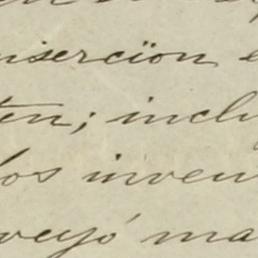 inserción e
ten; inclu
los inven
oveyó ma